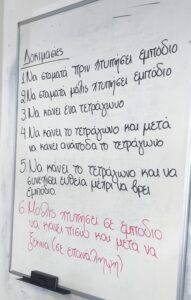 Δοκιμασιες
1. Να σταματά πριν χτυπήσει εμπόδιο
2. Να σταματά μόλις χτυπήσει εμπόδιο
3 Να κάνει ένα τετράγωνο
4. Να κάνει το τετράγωνο και μετά
να κάνει ανάποδα το τετράγωνο
5. Να κάνει το τετράγωνο και να
συνεχίσει ευθεία μέχρι να βρει
εμπόδιο
6. Μόλις χτυπήσει σε εμπόδιο
να κάνει πίσω και μετά να
ξεκινά (σε επανάληψη)